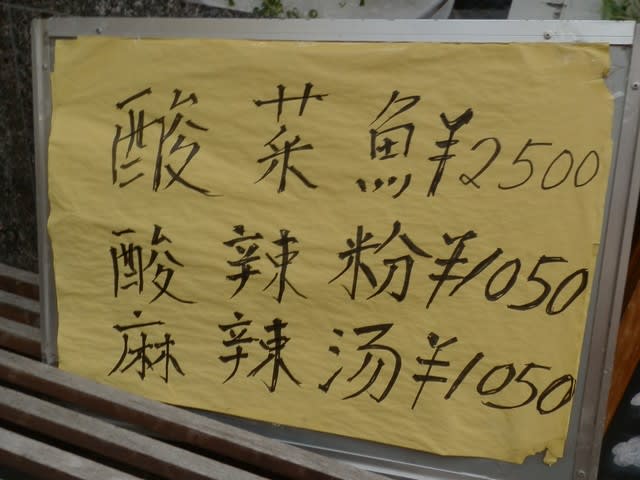 酸菜魚¥2500
酸辣粉¥1050
麻辣汤¥1050